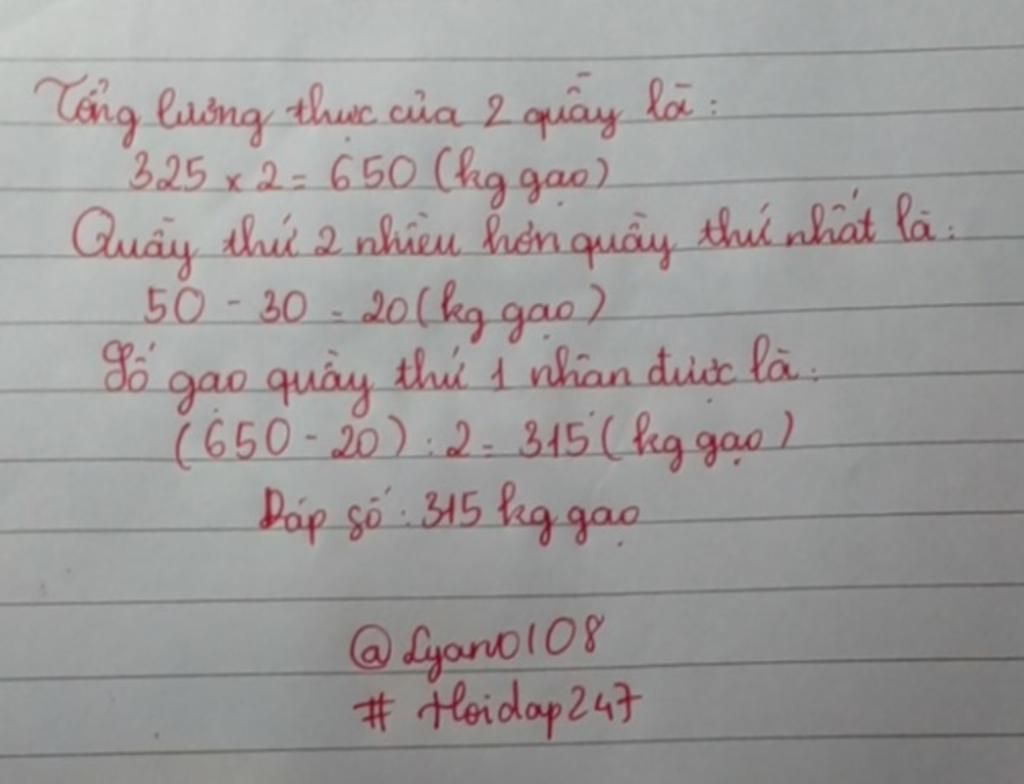 Tổng lương thực của 2 quầy là:
325 x 2 = 650 (kg gạo)
Quầy thứ 2 nhiều hơn quầy thứ nhất là:
50 - 30 = 20 (kg gạo)
Số gạo quầy thứ 1 nhận được là:
(650 - 20) : 2 = 315 (kg gạo)
Đáp số: 315 kg gạo
@Lyan0108
# Hoidap247